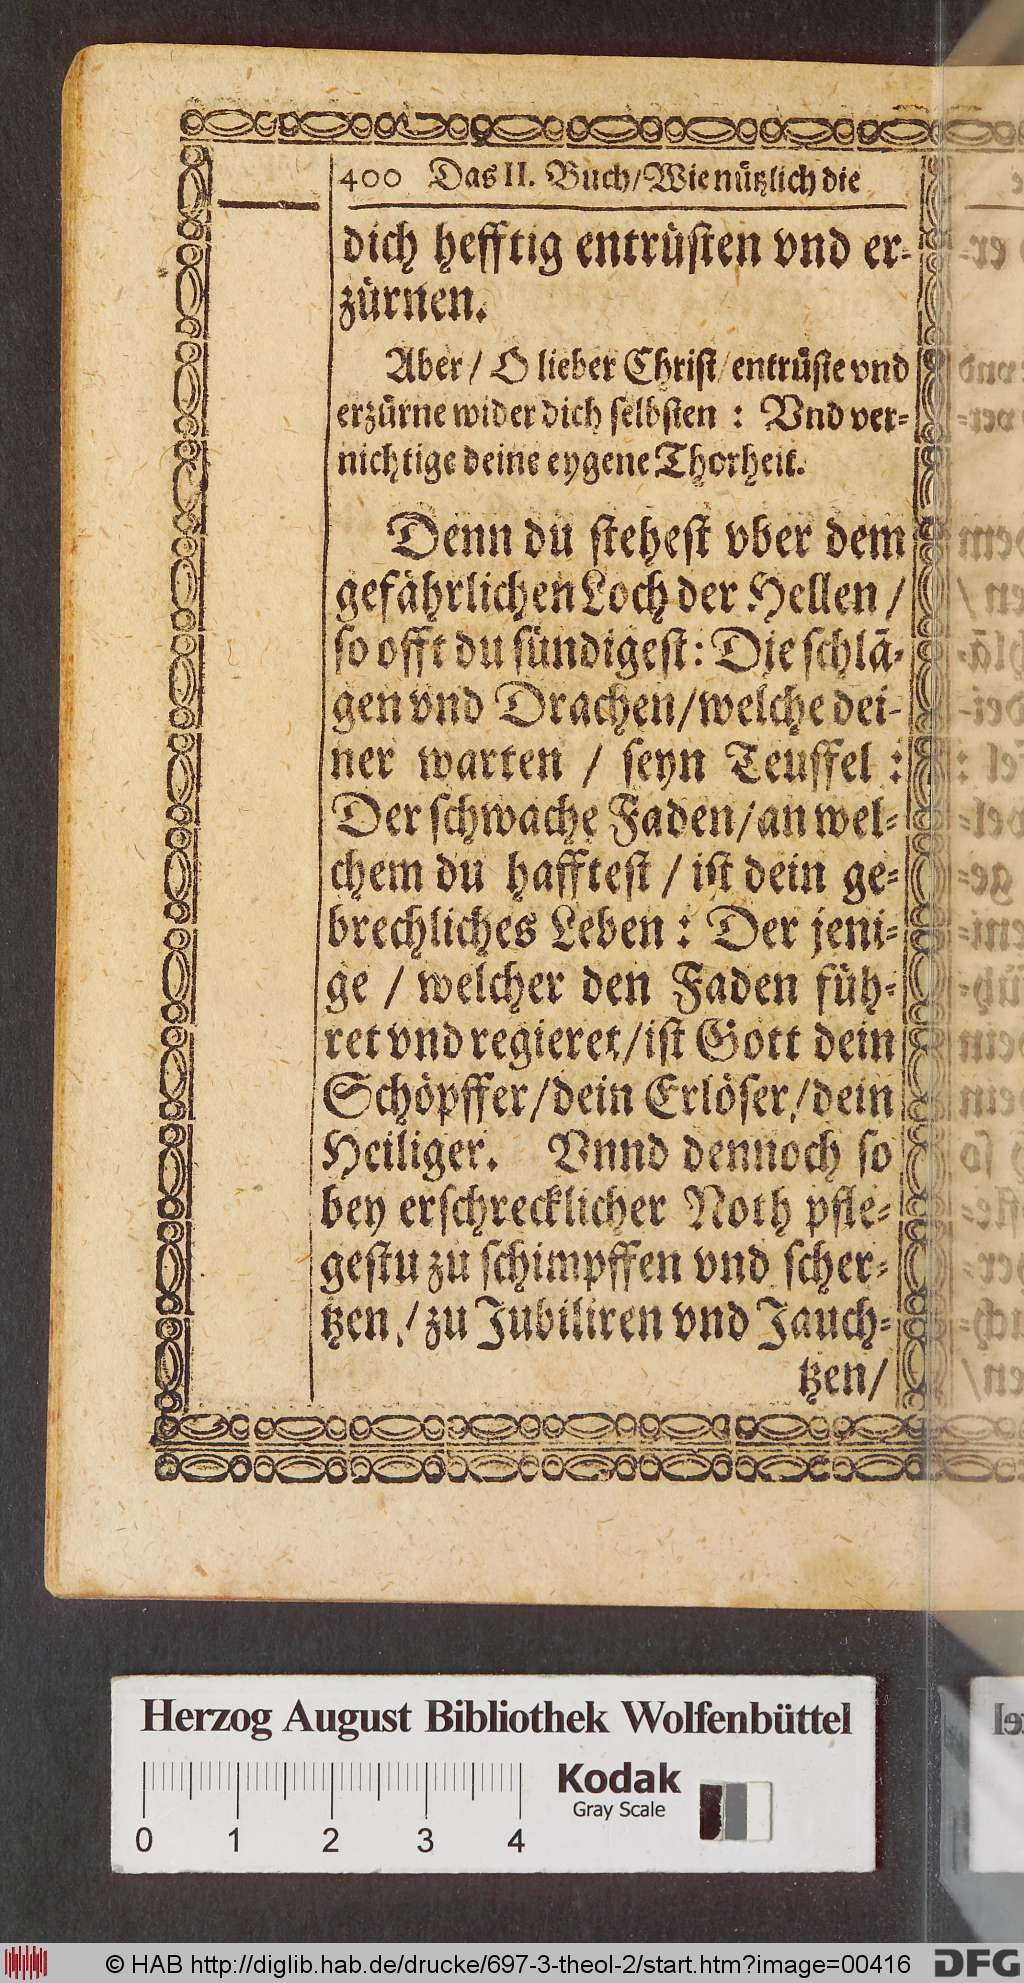 400 Das II. Buch/Wie nützlich die
dich hefftig entrüsten vnd er-
zürnen.
Aber/ O lieber Christ/ entrüste vnd
erzürne wider dich selbsten : Vnd ver-
nichtige deine eygene Thorheit.
Denn du stehest vber dem
gefährlichen Loch der Hellen /
so offt du sündigest: Die schlā-
gen vnd Drachen/welche dei-
ner warten / seyn Teuffel :
Der schwache Faden/an wel-
chem du hafftest / ist dein ge-
brechliches Leben : Der jeni-
ge / welcher den Faden füh-
ret vnd regieret/ist Gott dein
Schöpffer/dein Erlöser/dein
Heiliger. Vnnd dennoch so
bey erschrecklicher Noth pfle-
gestu zu schimpffen vnd scher-
tzen/zu Jubiliren vnd Jauch-
tzen/
Herzog August Bibliothek Wolfenbüttel
Kodak
Gray Scale
0 1 2 3 4
© HAB http://diglib.hab.de/drucke/697-3-theol-2/start.htm?image=00416
DFG